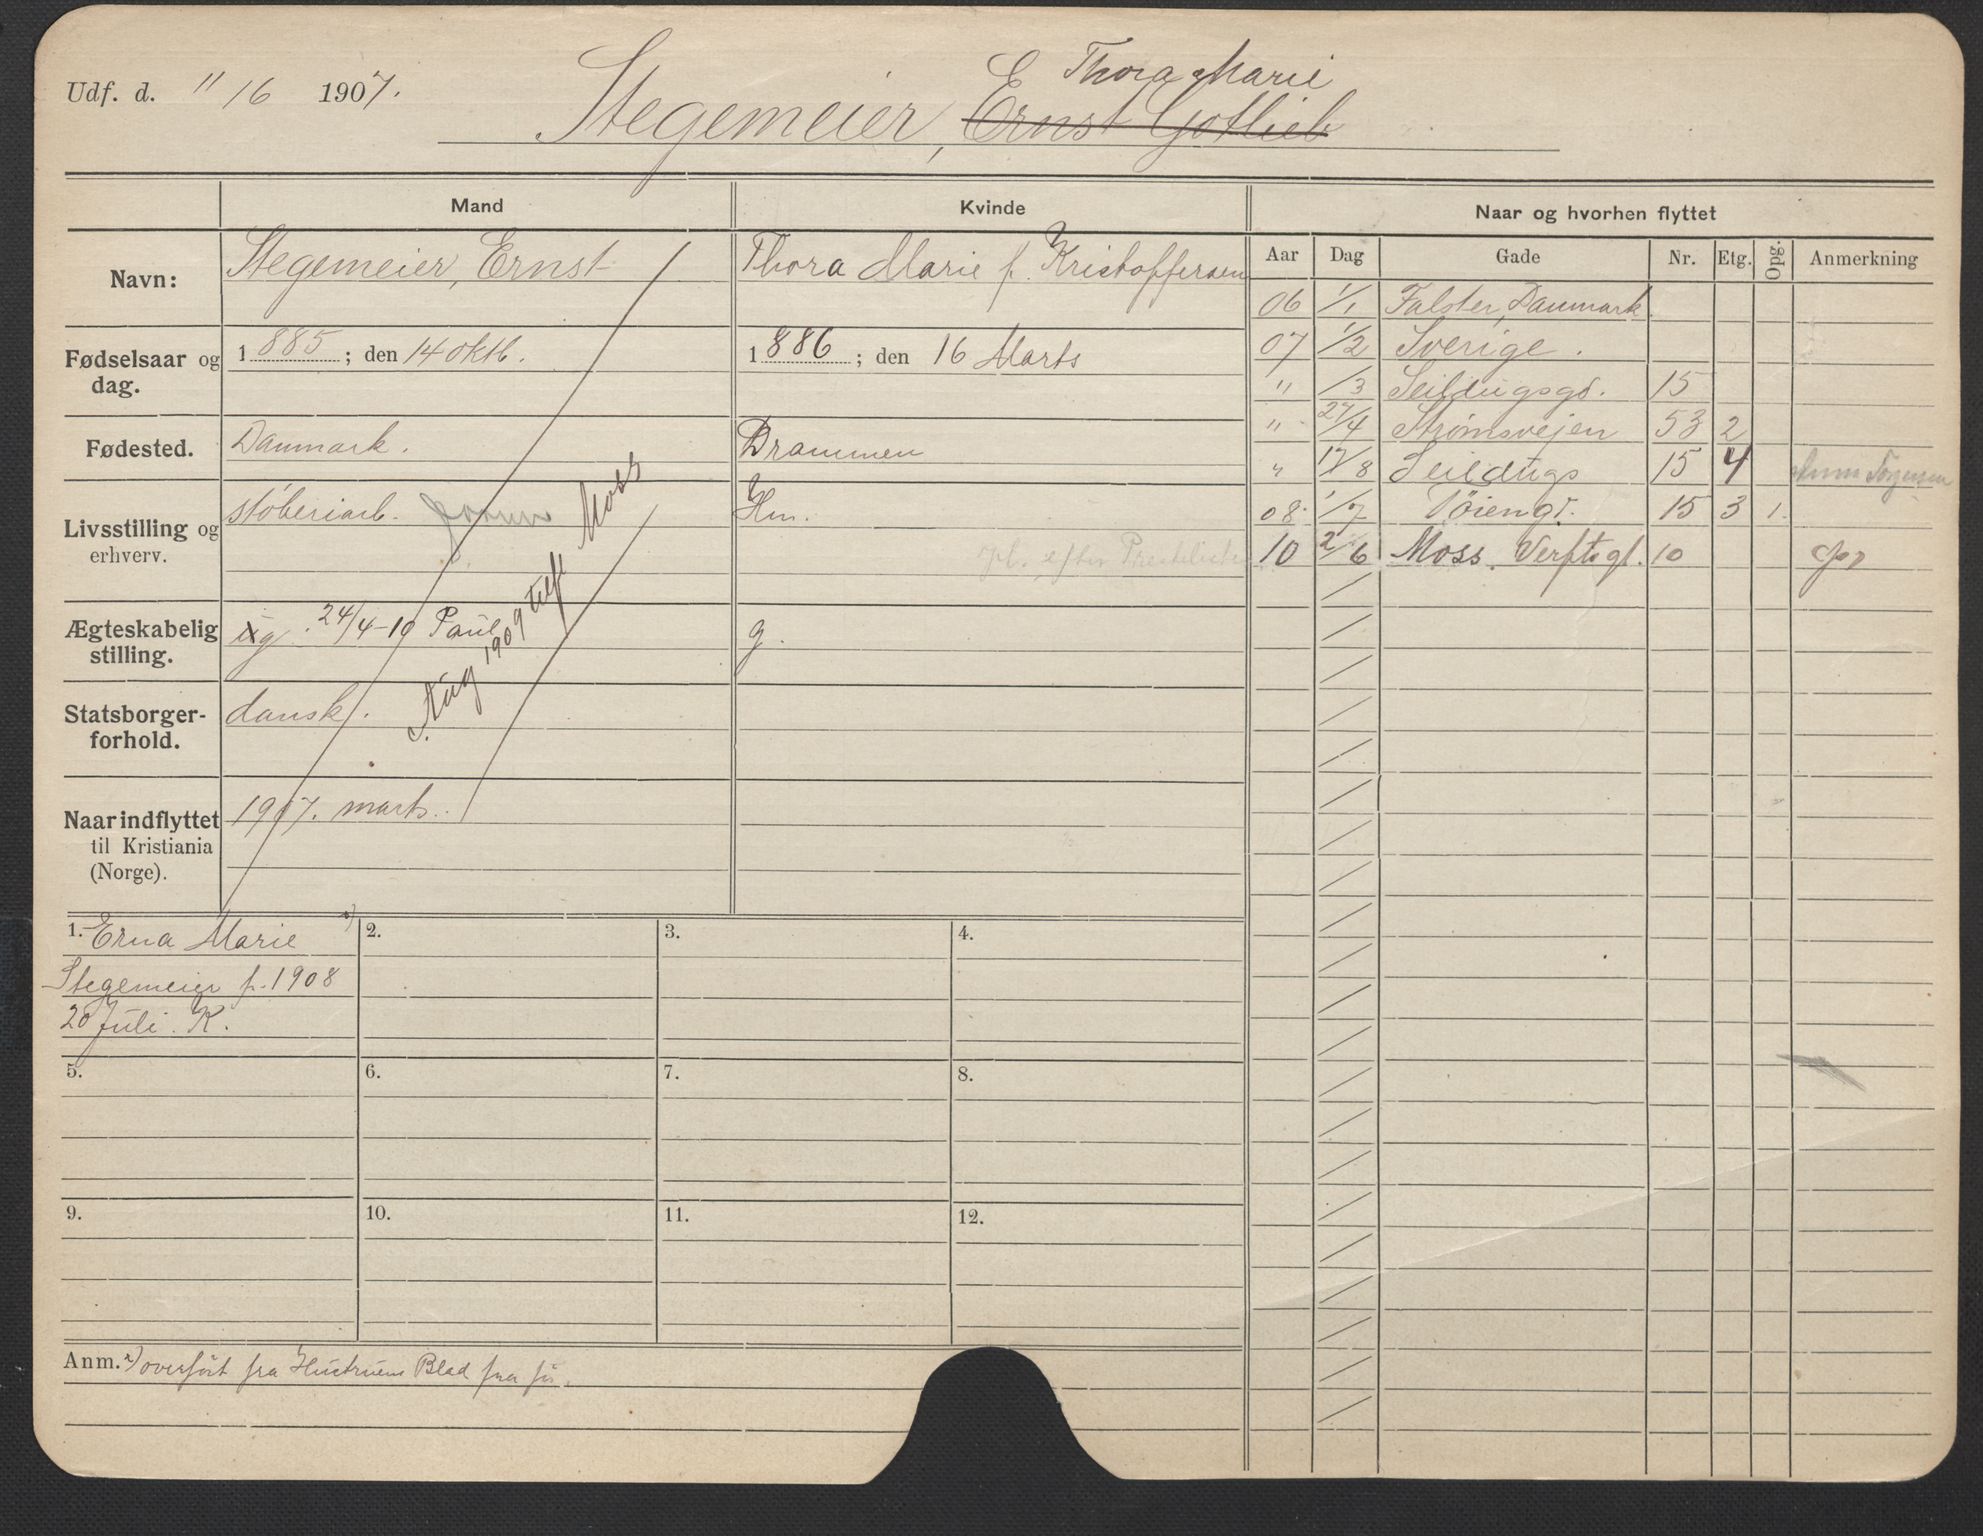 Udf. d. " 16 1907.
E Thora Marie
Stegemeier, Ernst Gotlieb
Mand
Kvinde
Naar og hvorhen flyttet
Navn:
Stegemeier, Ernst
Thora Marie f. Kristoffersen
Aar Dag Gade Nr. Etg. Opg. Anmerkning
06 1/1 Falster, Danmark.
07 1/2 Sverige.
" /3 Seildugsgd. 15
" 27/4 Strømsvejen 53 2
" 17/8 Seildugs 15 4
08 1/7 Vøiengt. 15 3 1.
10 2/6 Moss. Verftsgt. 10
Fødselsaar og dag.
1885; den 14 oktb.
1886; den 16 Marts
Fødested.
Danmark.
Drammen
Livsstilling og erhverv.
støberiarb.
Hm.
Ægteskabelig stilling.
ug. 24/4-10 Paul
g.
Aug 1909 tilfl Moss
Statsborgerforhold.
dansk.
Naar indflyttet til Kristiania (Norge).
1907. marts.
1. Erna Marie
Stegemeier f. 1908
20 Juli. K.
2.
3.
4.
5.
6.
7.
8.
9.
10.
11.
12.
Anm. overført fra Hustruens Blad